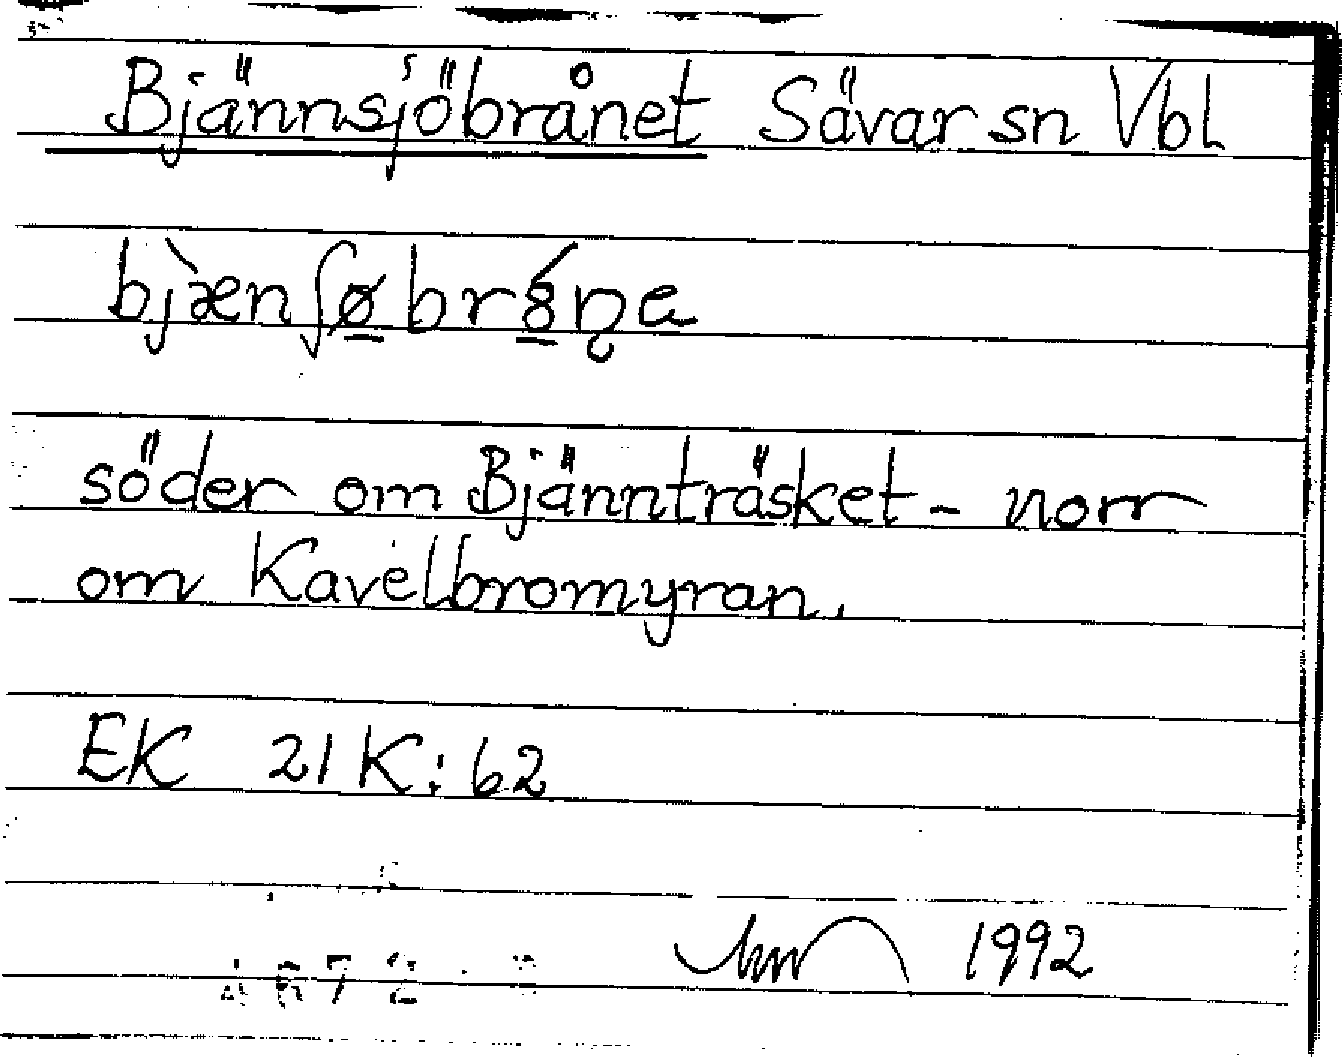 Bjännsjöbrånet Sävar sn Vbl
bjæ̀nʃøbrȣ́ɳe
söder om Bjännträsket - norr
om Kavelbromyran.
EK 21K:62
1992